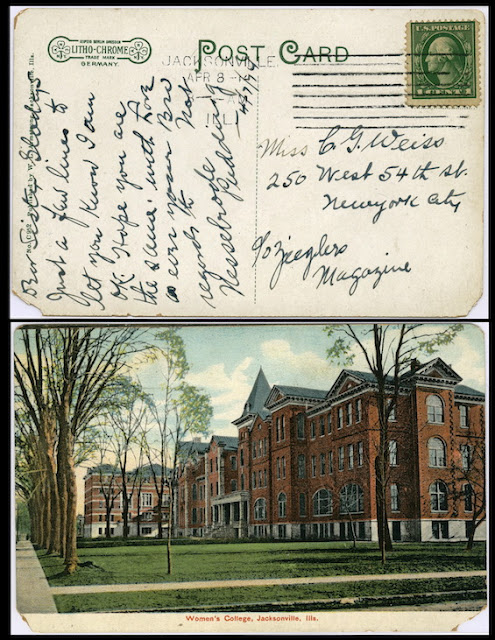 SUPER BERLIN AMERICAN
LITHO-CHROME
TRADE MARK
GERMANY.
POST CARD
JACKSONVILLE
APR 8
ILL
U.S. POSTAGE
1 CENT 1
Just a few lines to
let you know I am
OK Hope you are
the same with Love
as ever your Bro
regards to
Miss C. G. Weiss
250 West 54th st.
Newyork City
c/o Zieglers
Magazine
Women's College, Jacksonville, Ills.